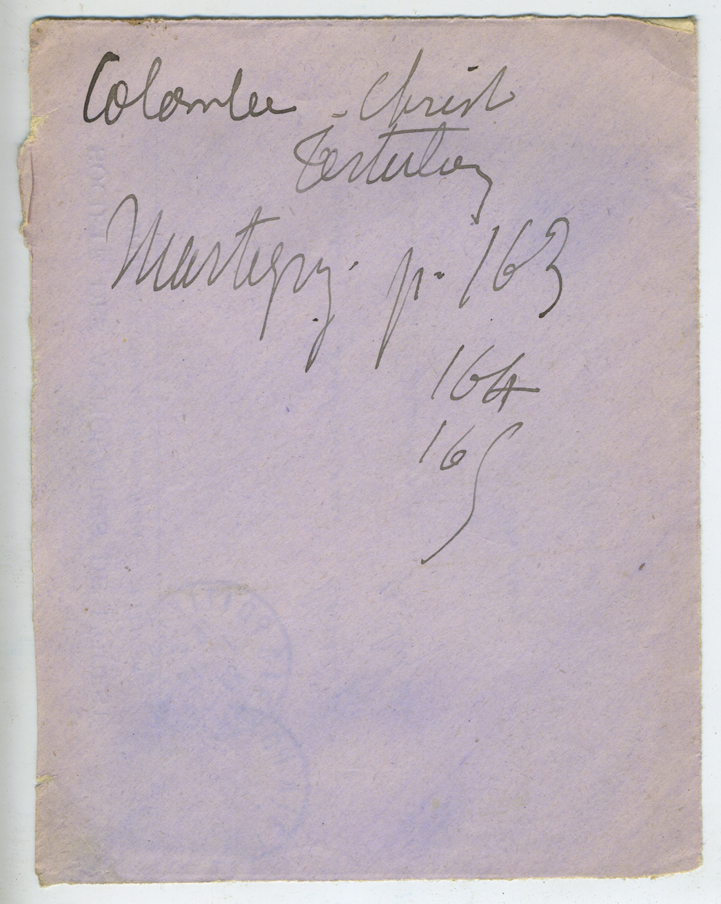 Colombe - Christ
Tertulien
Martigny. p. 163
164
165